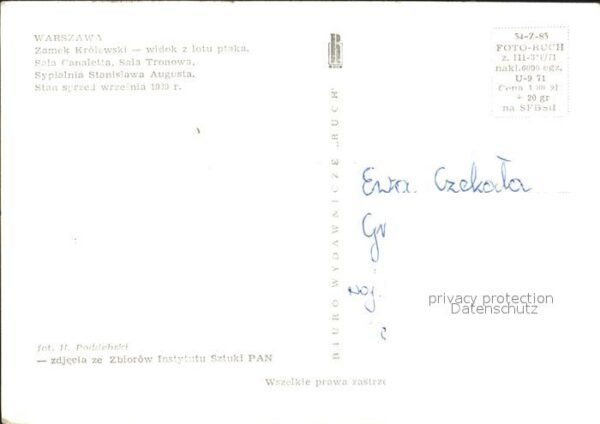 WARSZAWA
Zamek Królewski — widok z lotu ptaka.
Sala Canaletta, Sala Tronowa,
Sypialnia Stanisława Augusta.
Stan sprzed września 1939 r.
FOTO-RUCH
nakł. 6000 egz.
U-9 71
Cena 1.00 zł
+ 20 gr
na SFBSiI
BIURO WYDAWNICZE „RUCH"
Ewa Czekała
Gr
woj.
privacy protection
Datenschutz
fot. H. Poddębski
— zdjęcia ze Zbiorów Instytutu Sztuki PAN
Wszelkie prawa zastrze